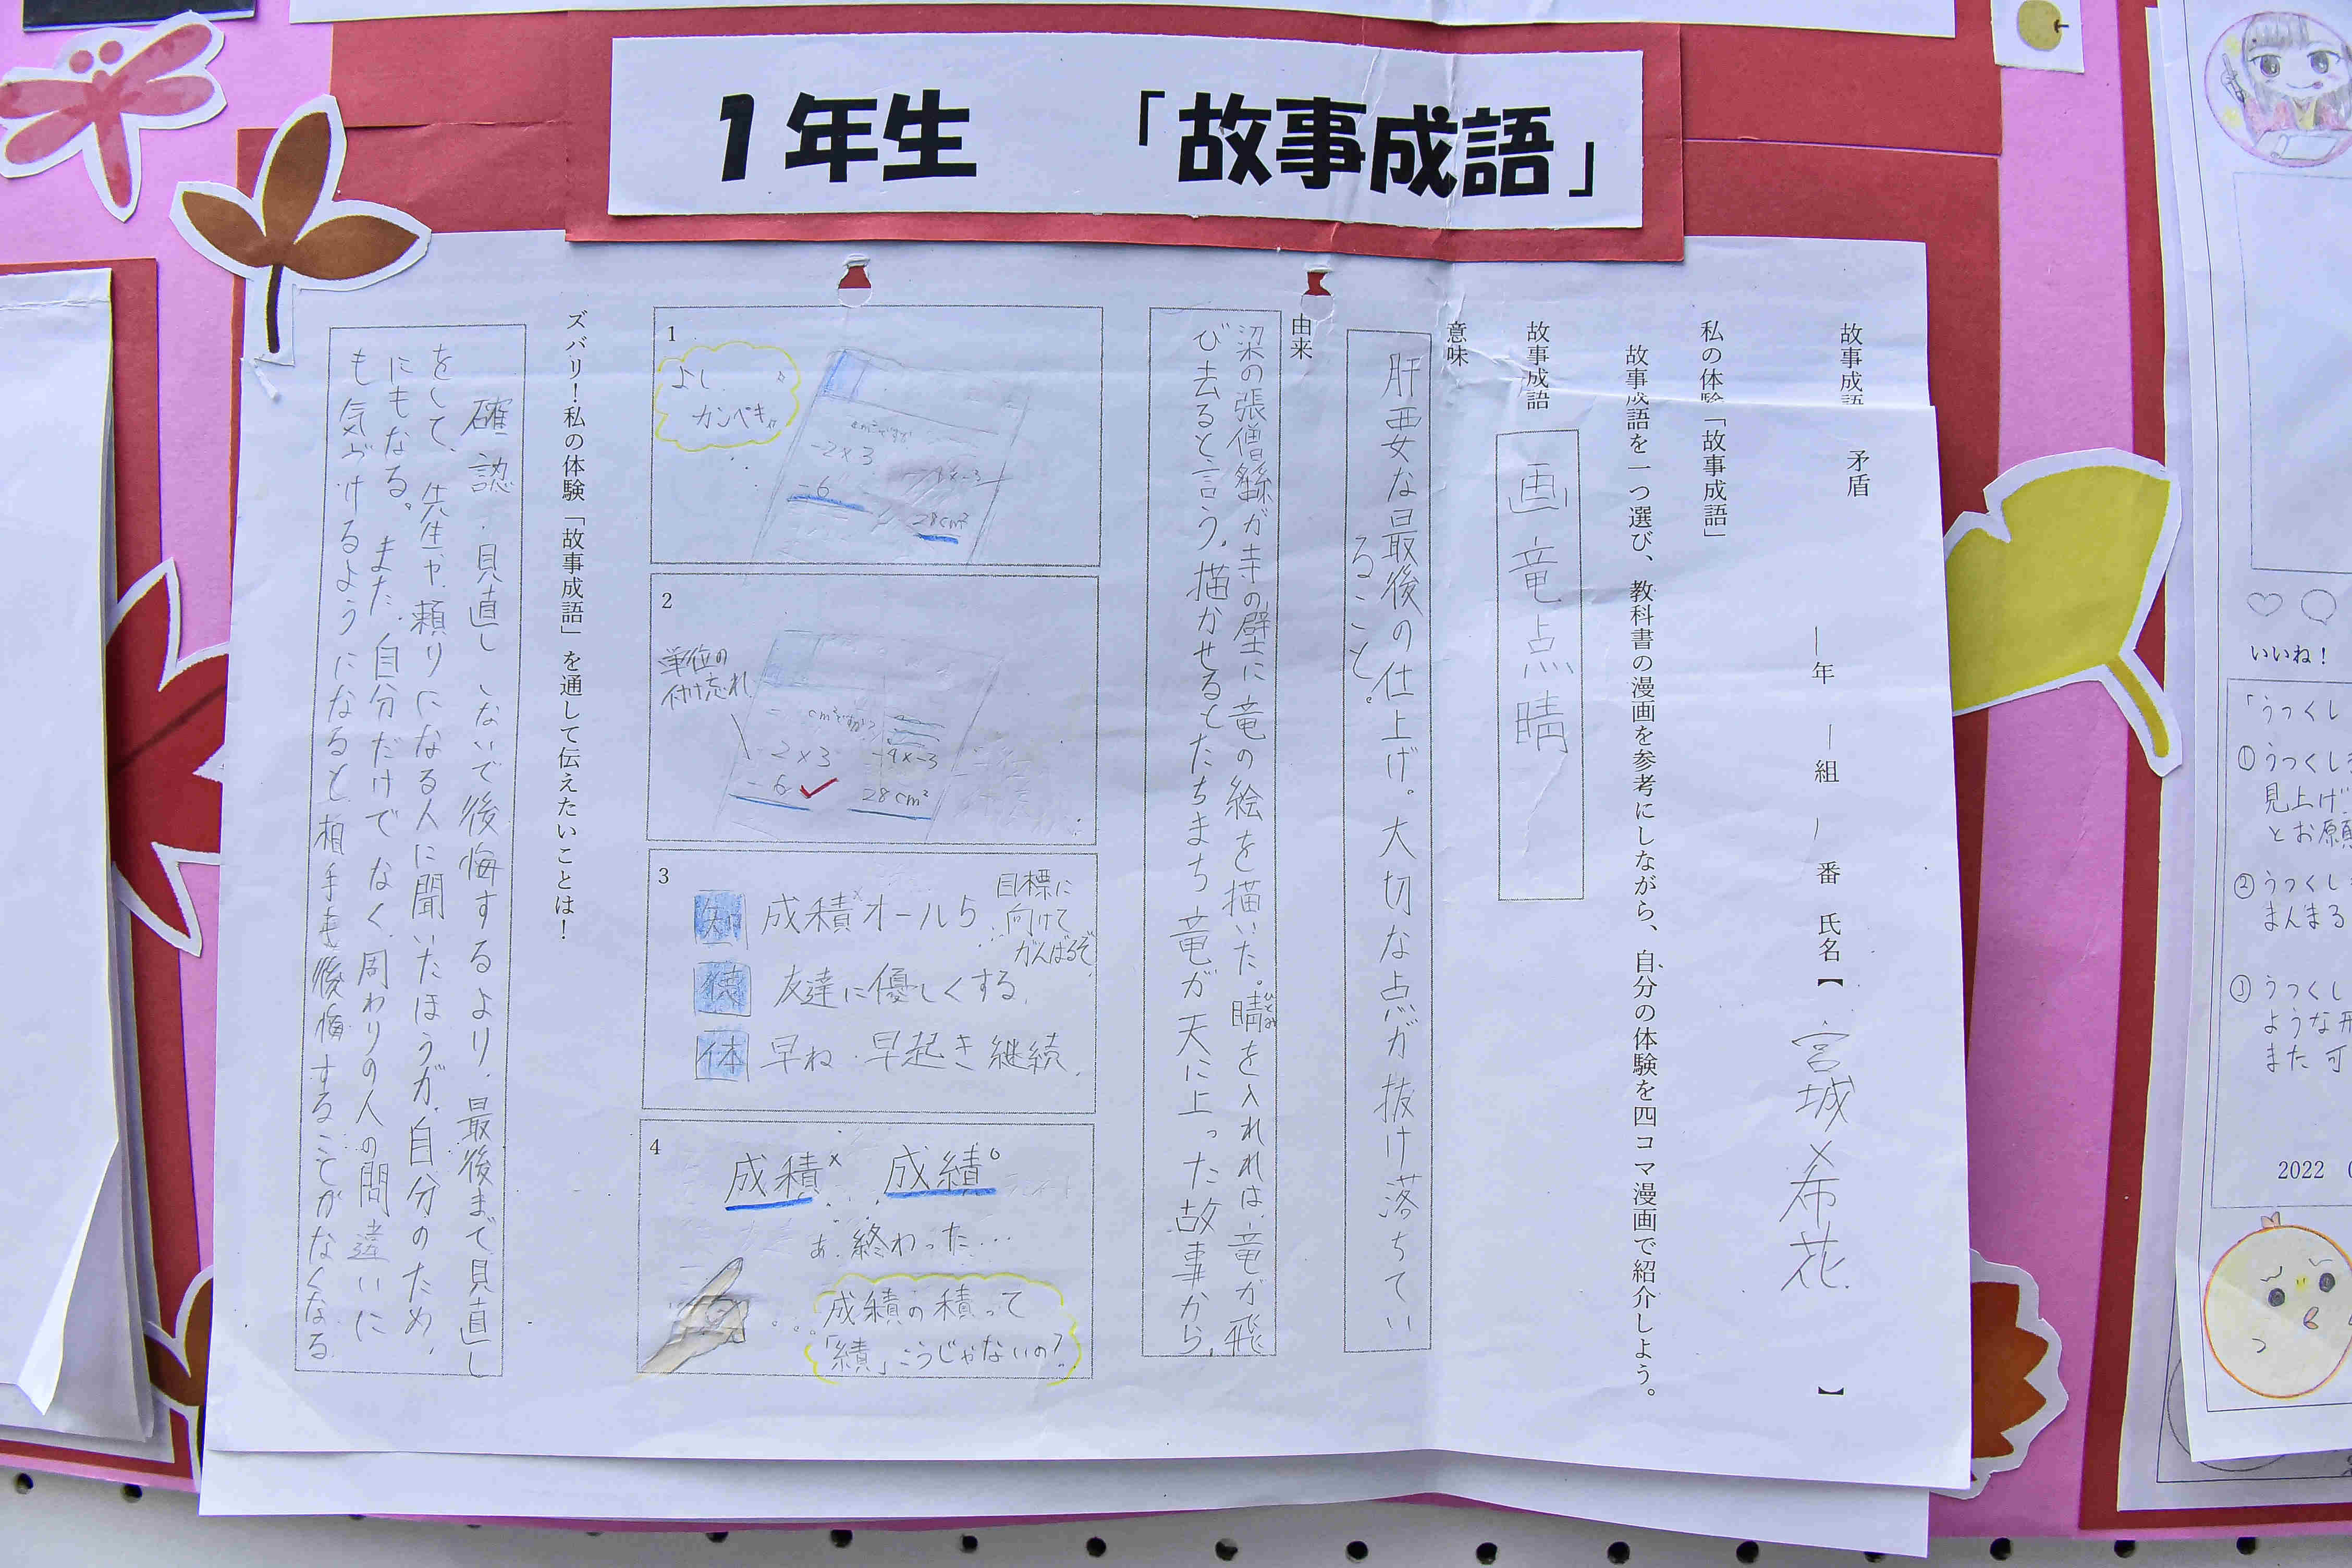 1年生 「故事成語」
故事成語 矛盾
年 組 番 氏名【 宮城希花 】
私の体験「故事成語」
故事成語を一つ選び、教科書の漫画を参考にしながら、自分の体験を四コマ漫画で紹介しよう。
故事成語
画竜点睛
意味
肝要な最後の仕上げ。大切な点が抜け落ちてい
ること。
由来
梁の張僧繇が寺の壁に竜の絵を描いた。睛を入れれば、竜が飛
ひとみ
び去ると言う。描かせるとたちまち竜が天に上った故事から。
1
よし
カンペキ
-2×3
-6
28cm²
2
単位の
付け忘れ
-2×3
-6
-9×-3
28cm²
3
知 成積×オール5
目標に
向けて
がんばるぞ
徳 友達に優しくする。
体 早ね・早起き継続。
4
成積× 成績○
あ、終わった…
成績の積って
「績」こうじゃないの?
ズバリ!私の体験「故事成語」を通して伝えたいことは!
確認・見直しないで後悔するより、最後まで見直し
をして、先生や、頼りになる人に聞いたほうが、自分のため、
にもなる。また、自分だけでなく、周わりの人の間違いに
も気づけるようになると、相手も後悔することがなくなる
いいね!
「うつくし
① うつくし
見上げ
とお願
② うつくし
まんまる
③ うつくし
ような
また 可
2022